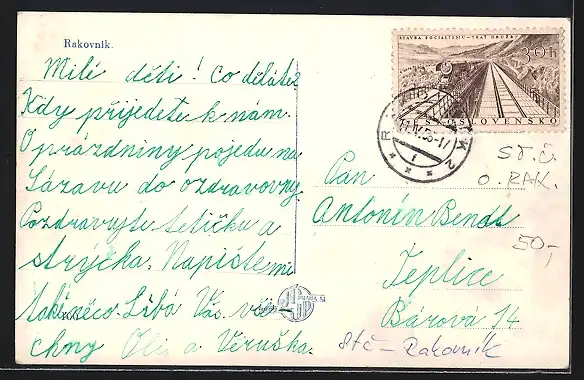 Rakovník.
Milé děti! Co děláte?
Kdy přijedete k nám.
O prázdniny pojedu na
Sázavu do ozdravovny.
Pozdravujte tetičku a
strýčka. Napište mi
také něco. Líbá Vás vše
chny Oli a Věruška.
STAVBA SOCIALISMU - TRAŤ DRUŽBY
30h
ČESKOSLOVENSKO
RAKOVNÍK 2
St. Č.
O. RAK.
50,-
Pan
Antonín Bendl
Teplice
Bárova 14
Stč - Rakovník